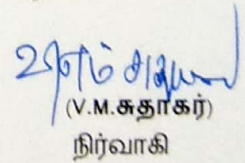 (V.M.சுதாகர்)
நிர்வாகி